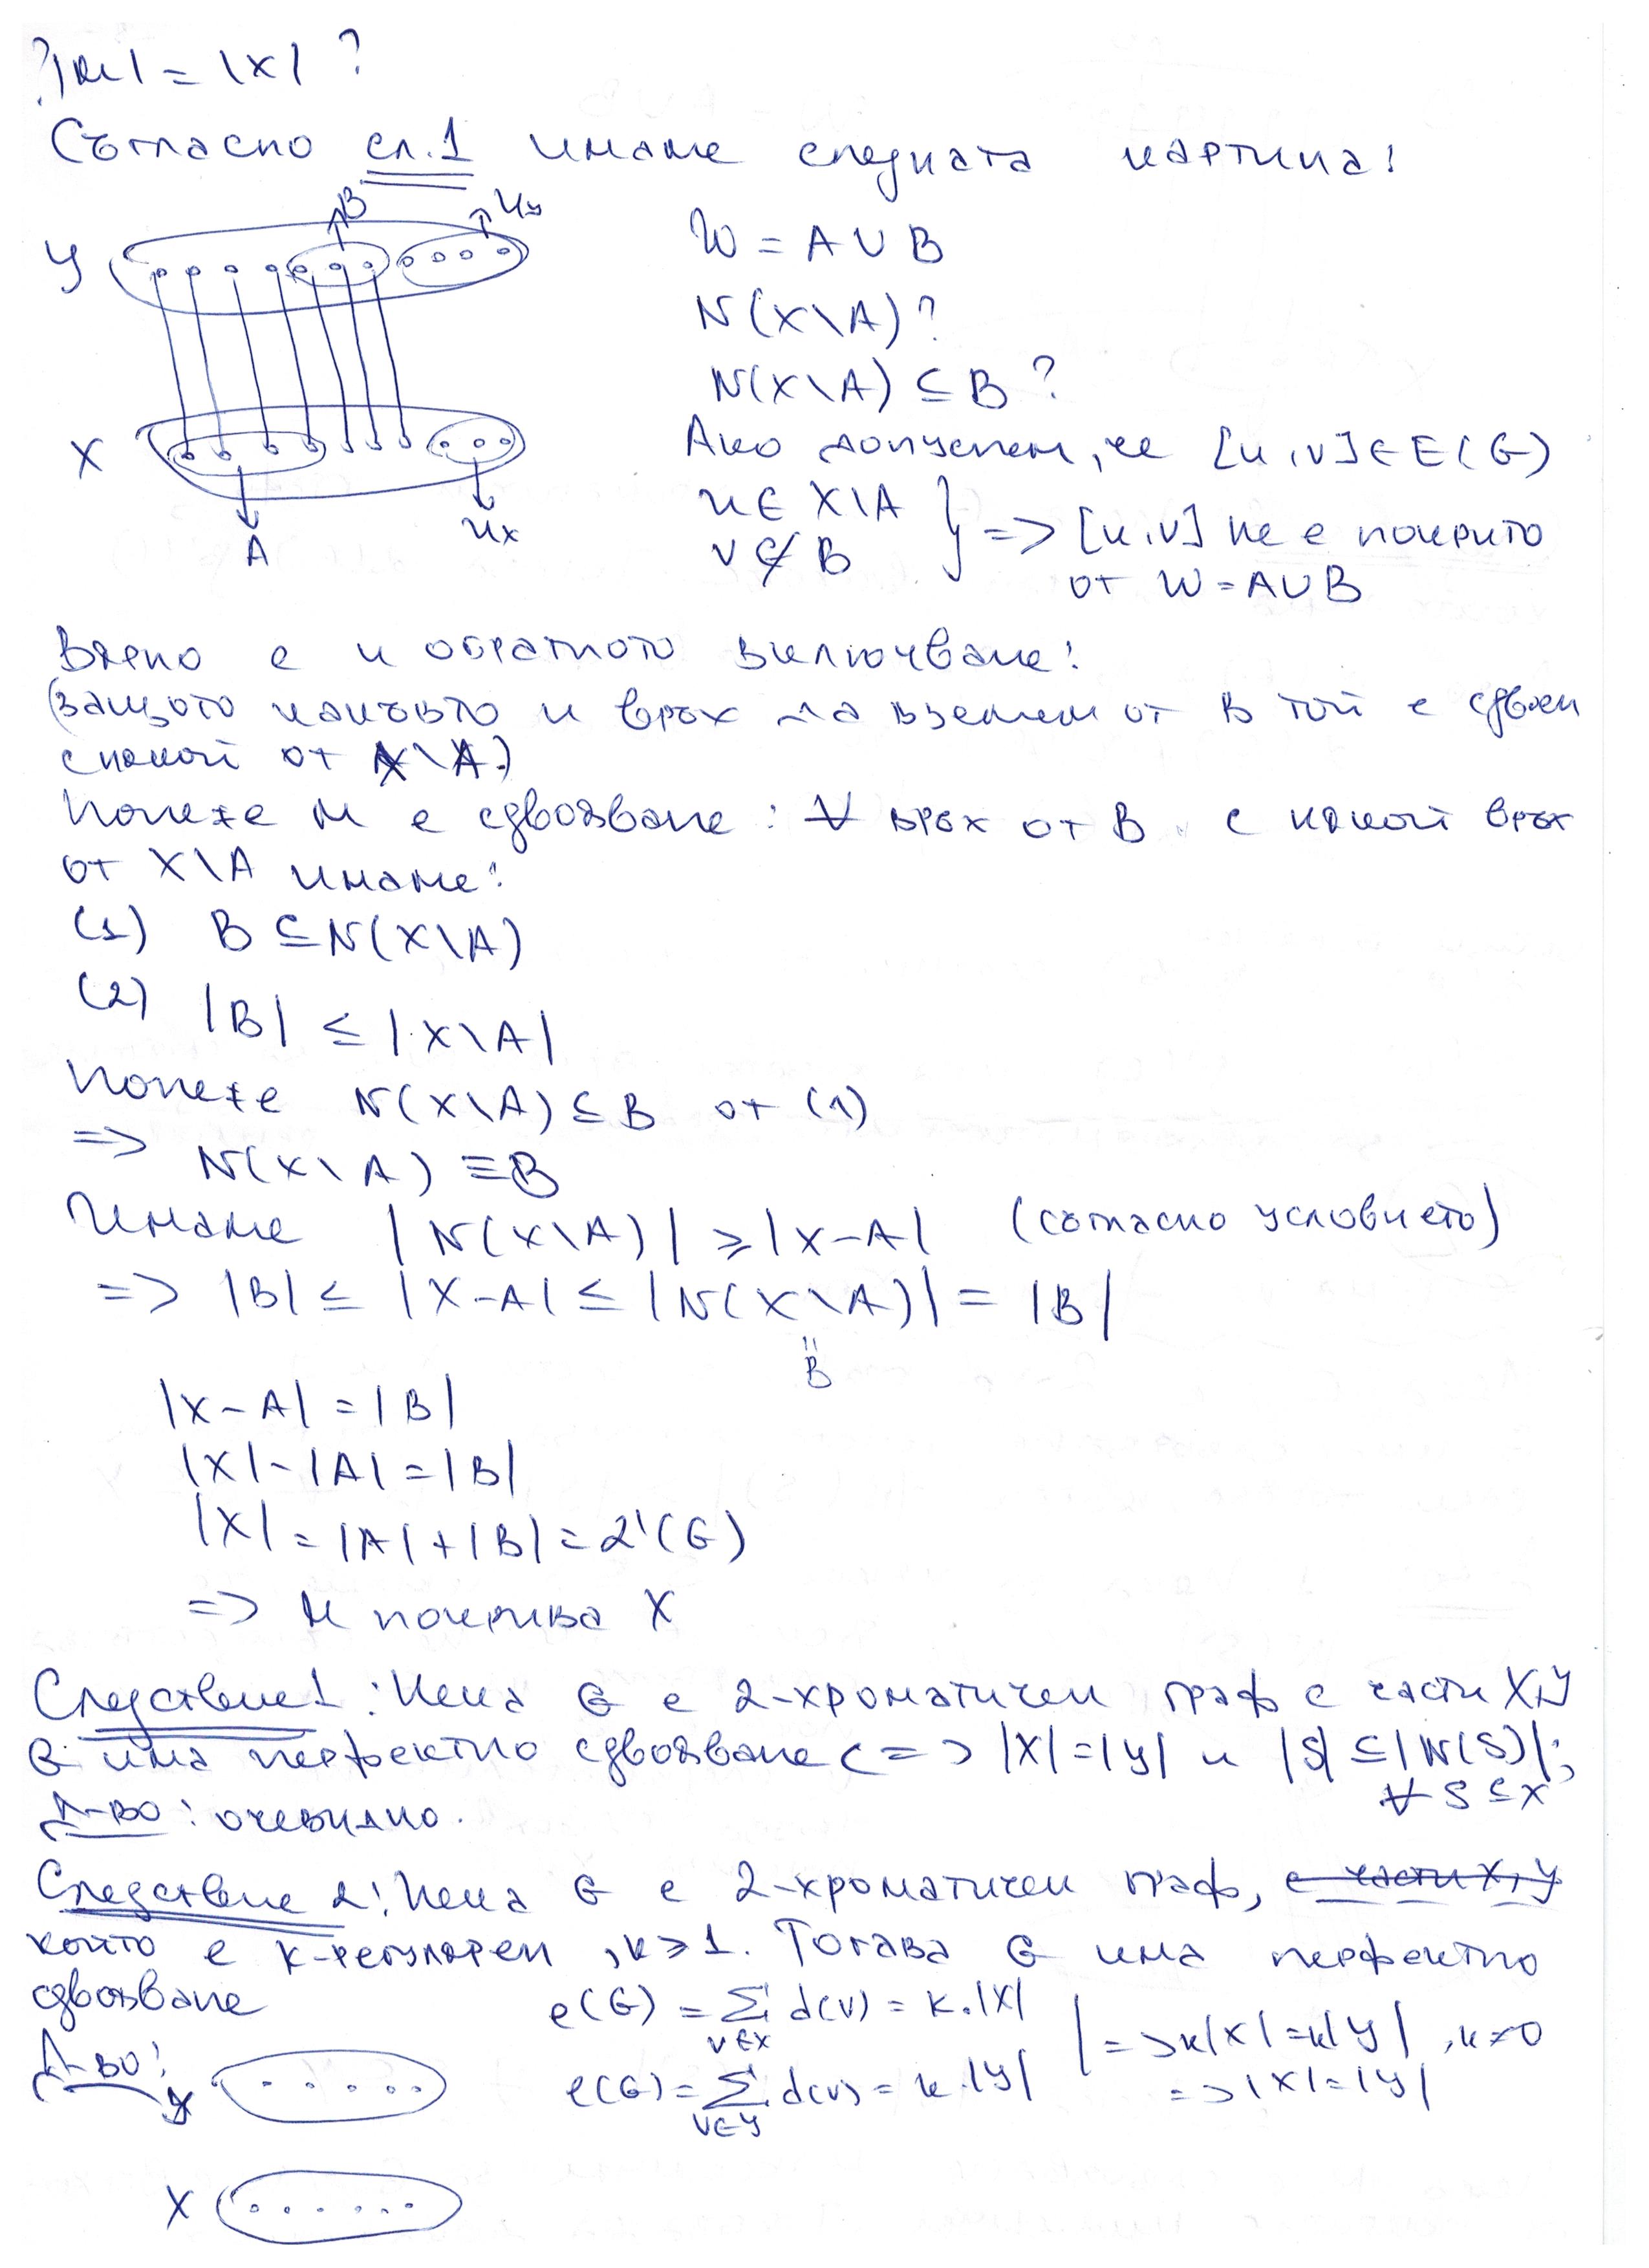 ? |M| = |X| ?
Съгласно сл.1 имаме следната картина:
B U_y
Y
X
A U_x
W = A ∪ B
N(X\A)?
N(X\A) ⊆ B ?
Ако допуснем, че [u,v] ∈ E(G)
u ∈ X\A
v ∉ B } => [u,v] не е покрито
от W = A∪B
Вярно е и обратното включване:
(защото какъвто и връх да вземем от B той е сдвоен
с някой от X\A.)
Понеже M е сдвояване: ∀ връх от B с някой връх
от X\A имаме:
(1) B ⊆ N(X\A)
(2) |B| ≤ |X\A|
Понеже N(X\A) ⊆ B от (1)
=> N(X\A) ≡ B
Имаме |N(X\A)| ≥ |X-A| (съгласно условието)
=> |B| ≤ |X-A| ≤ |N(X\A)| = |B|
"
B
|X-A| = |B|
|X|-|A| = |B|
|X| = |A|+|B| = α'(G)
=> M покрива X
Следствие 1: Нека G е 2-хроматичен граф с части X,Y
G има перфектно сдвояване <=> |X|=|Y| и |S| ≤ |N(S)|;
∀ S ⊆ X
Д-во: очевидно.
Следствие 2: Нека G е 2-хроматичен граф, с части X,Y
който е k-регулярен, k ≥ 1. Тогава G има перфектно
сдвояване
Д-во:
e(G) = Σ_{v∈X} d(v) = k.|X|
e(G) = Σ_{v∈Y} d(v) = k.|Y|
=> k|X| = k|Y|, k≠0
=> |X| = |Y|
Y
X